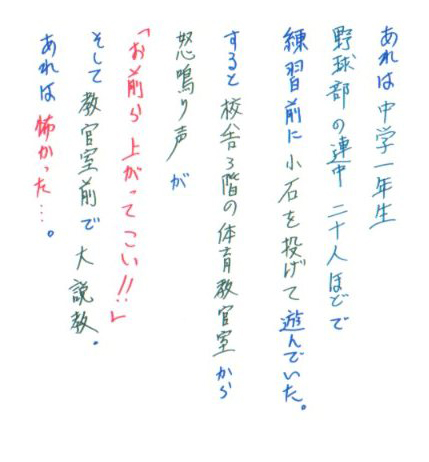 あれは中学一年生
野球部の連中二十人ほどで
練習前に小石を投げて遊んでいた。
すると校舎3階の体育教官室から
怒鳴り声が
「お前ら上がってこい!!」
そして教官室前で大説教。
あれは怖かった…。